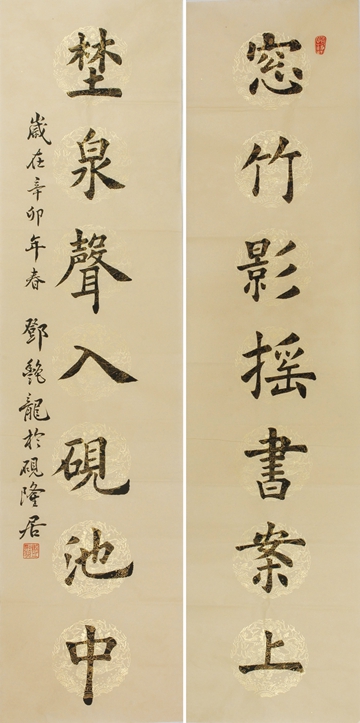 窓竹影摇書案上
埜泉聲入硯池中
歲在辛卯年春 鄧龍於硯隆居